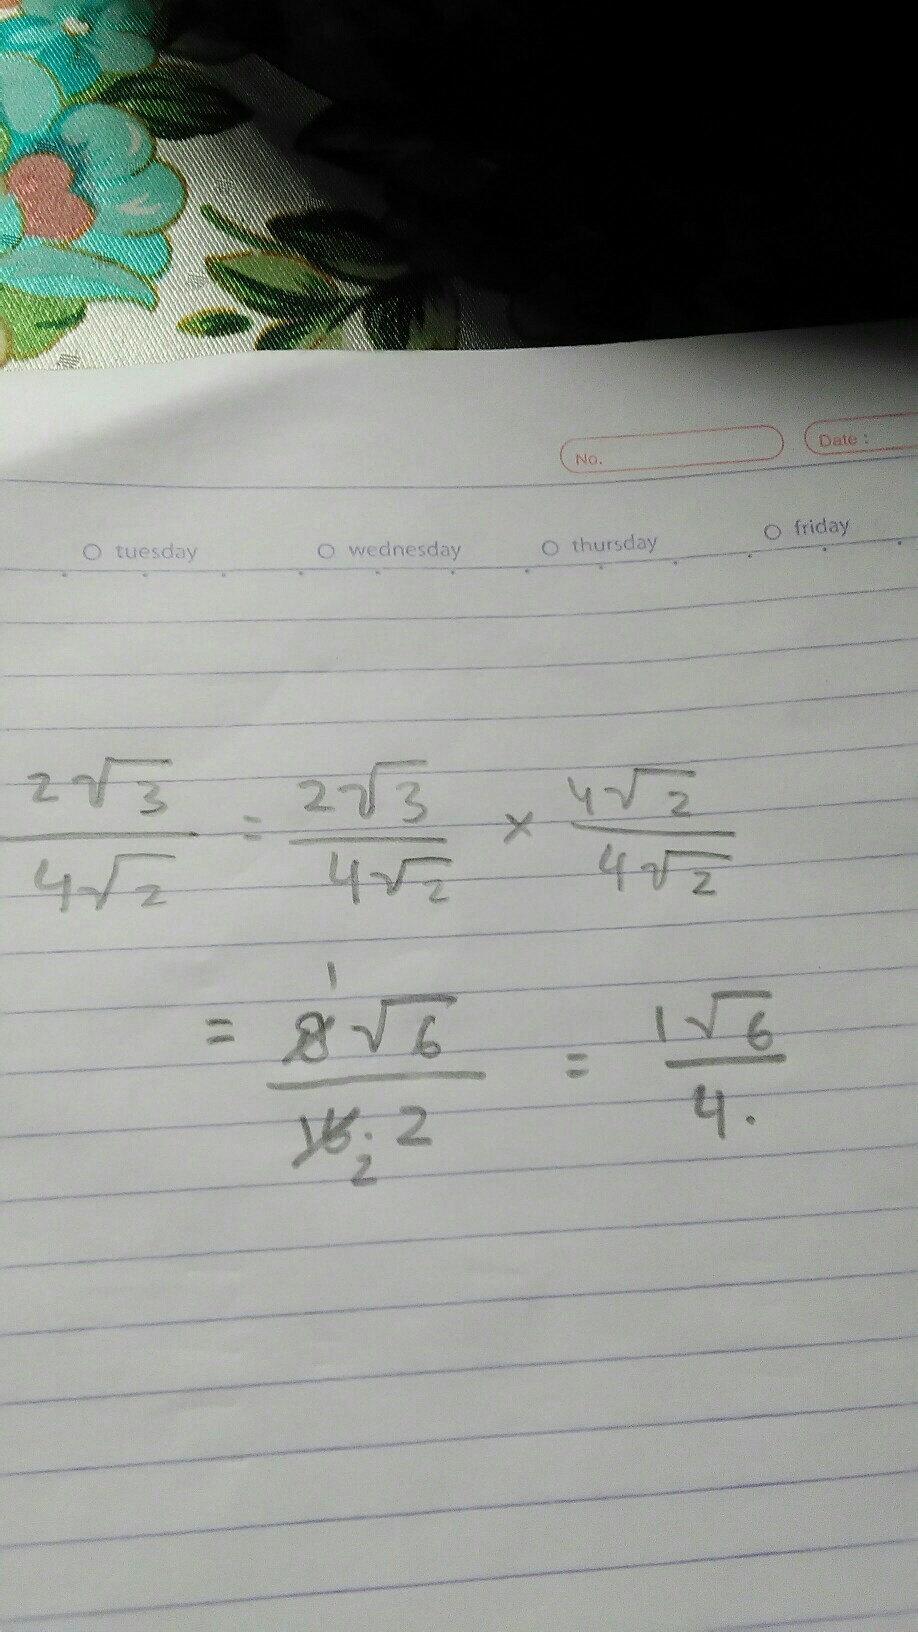 No.
Date :
tuesday wednesday thursday friday
2√3/4√2 = 2√3/4√2 × 4√2/4√2
= 8√6/16.2 = 1√6/4.
1
2